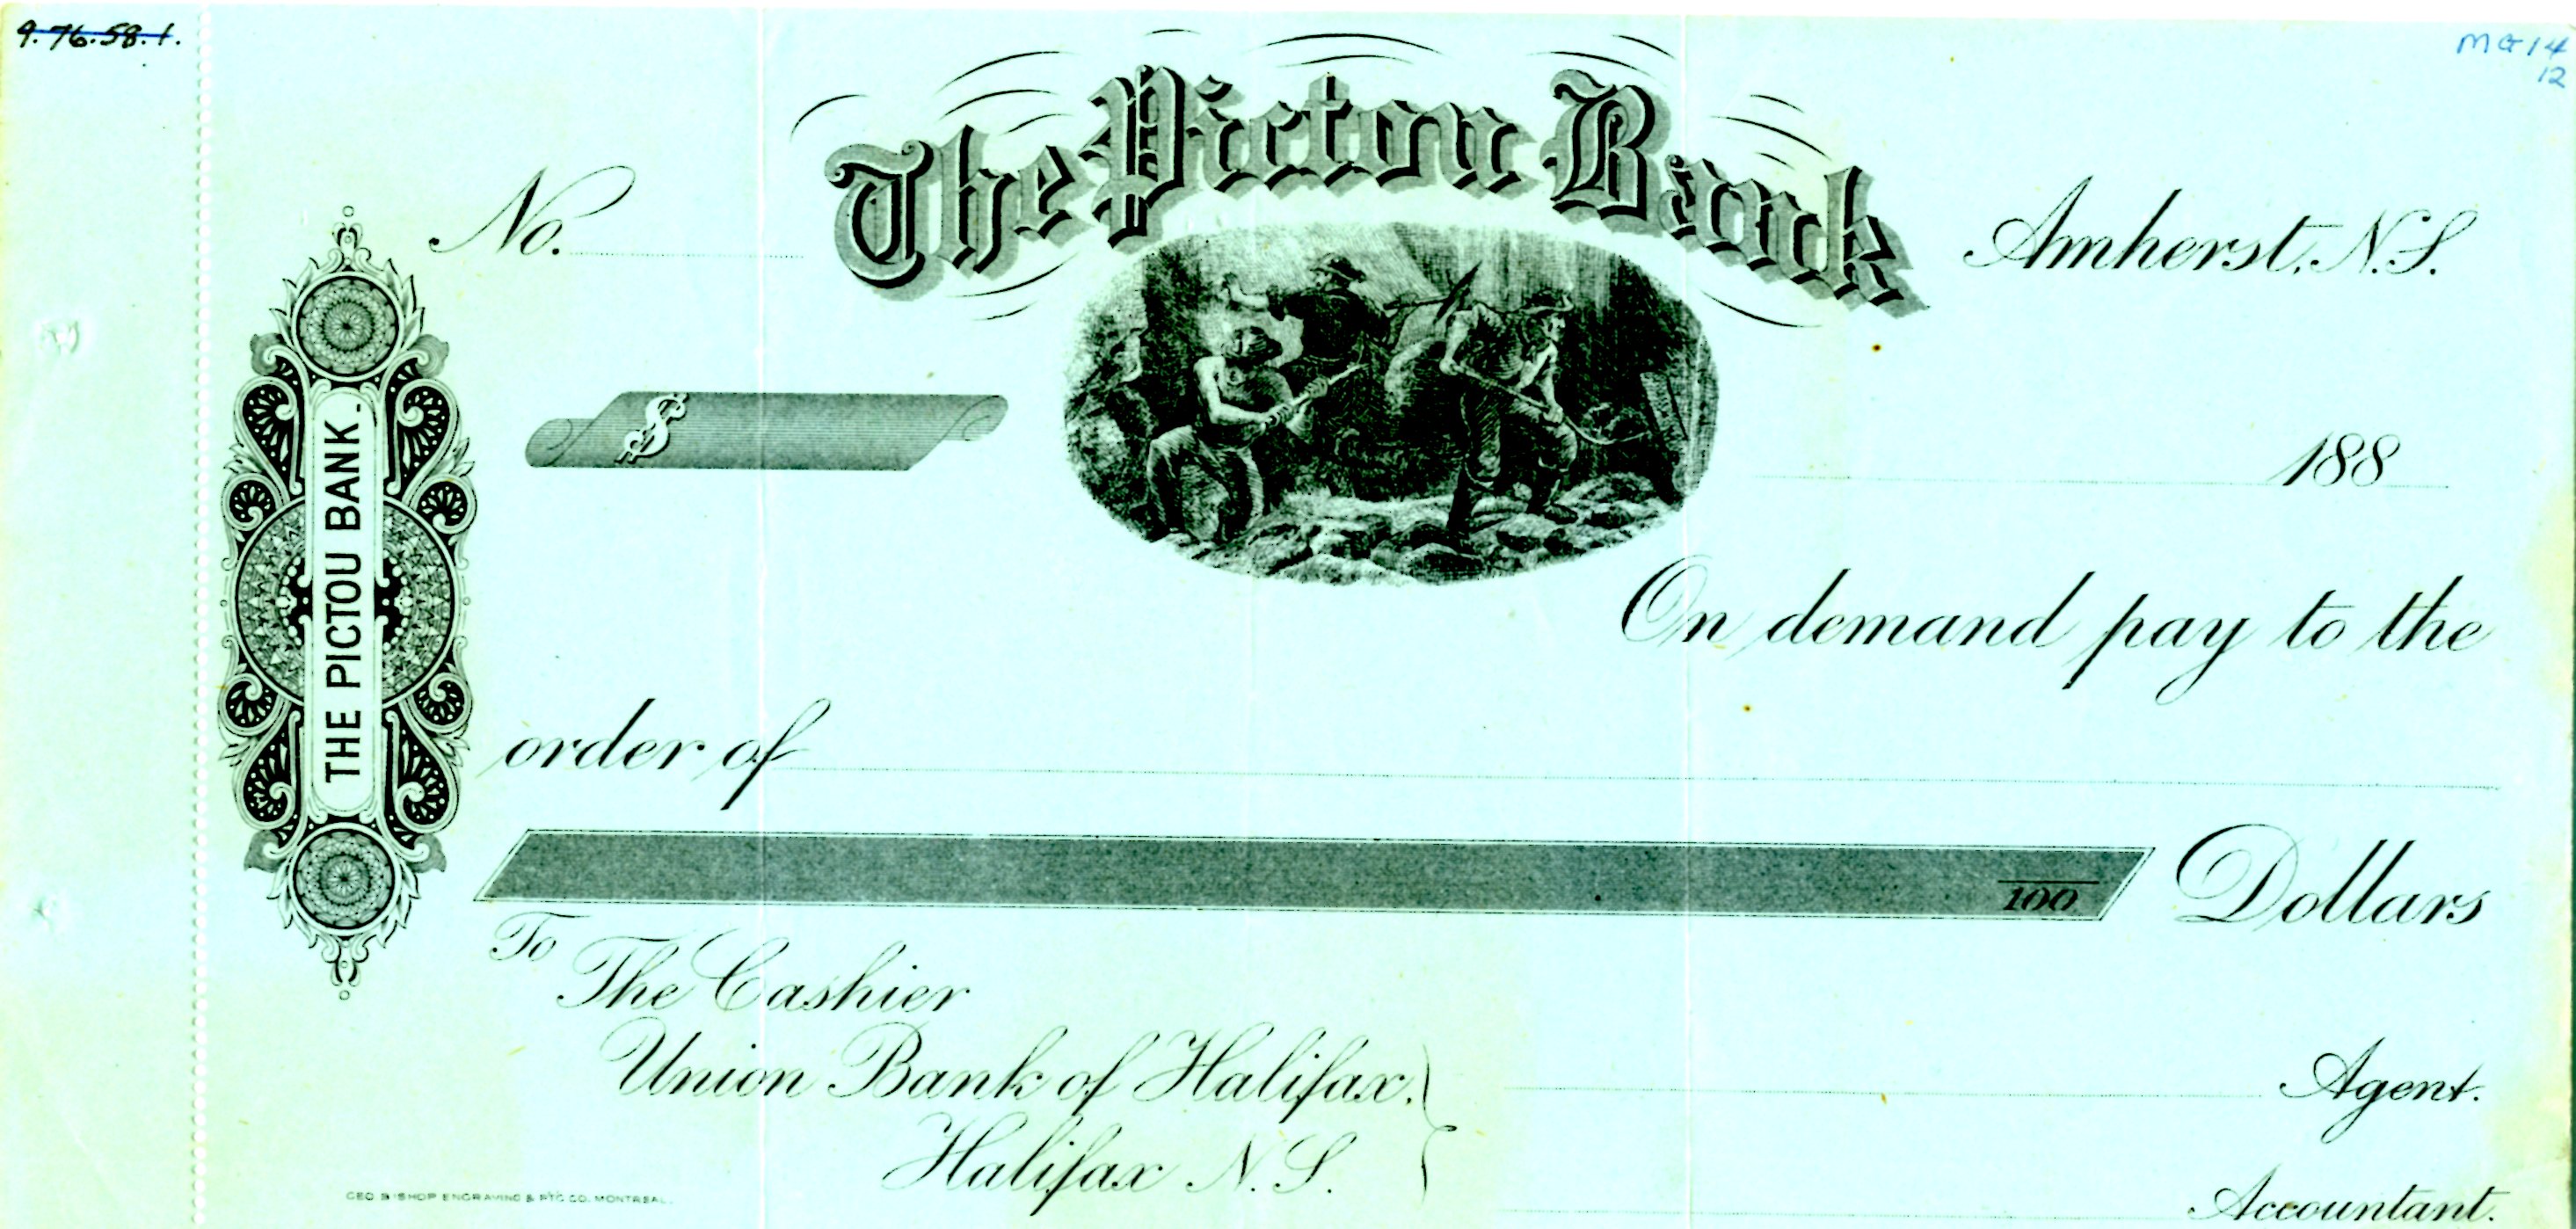 9.76.58.1.
MG14
12
The Pictou Bank
No.
Amherst, N.S.
THE PICTOU BANK.
$
188
On demand pay to the
order of
100
Dollars
To
The Cashier
Union Bank of Halifax.
Halifax N.S.
Agent.
Accountant.
GEO. BISHOP ENGRAVING & PTG CO. MONTREAL.